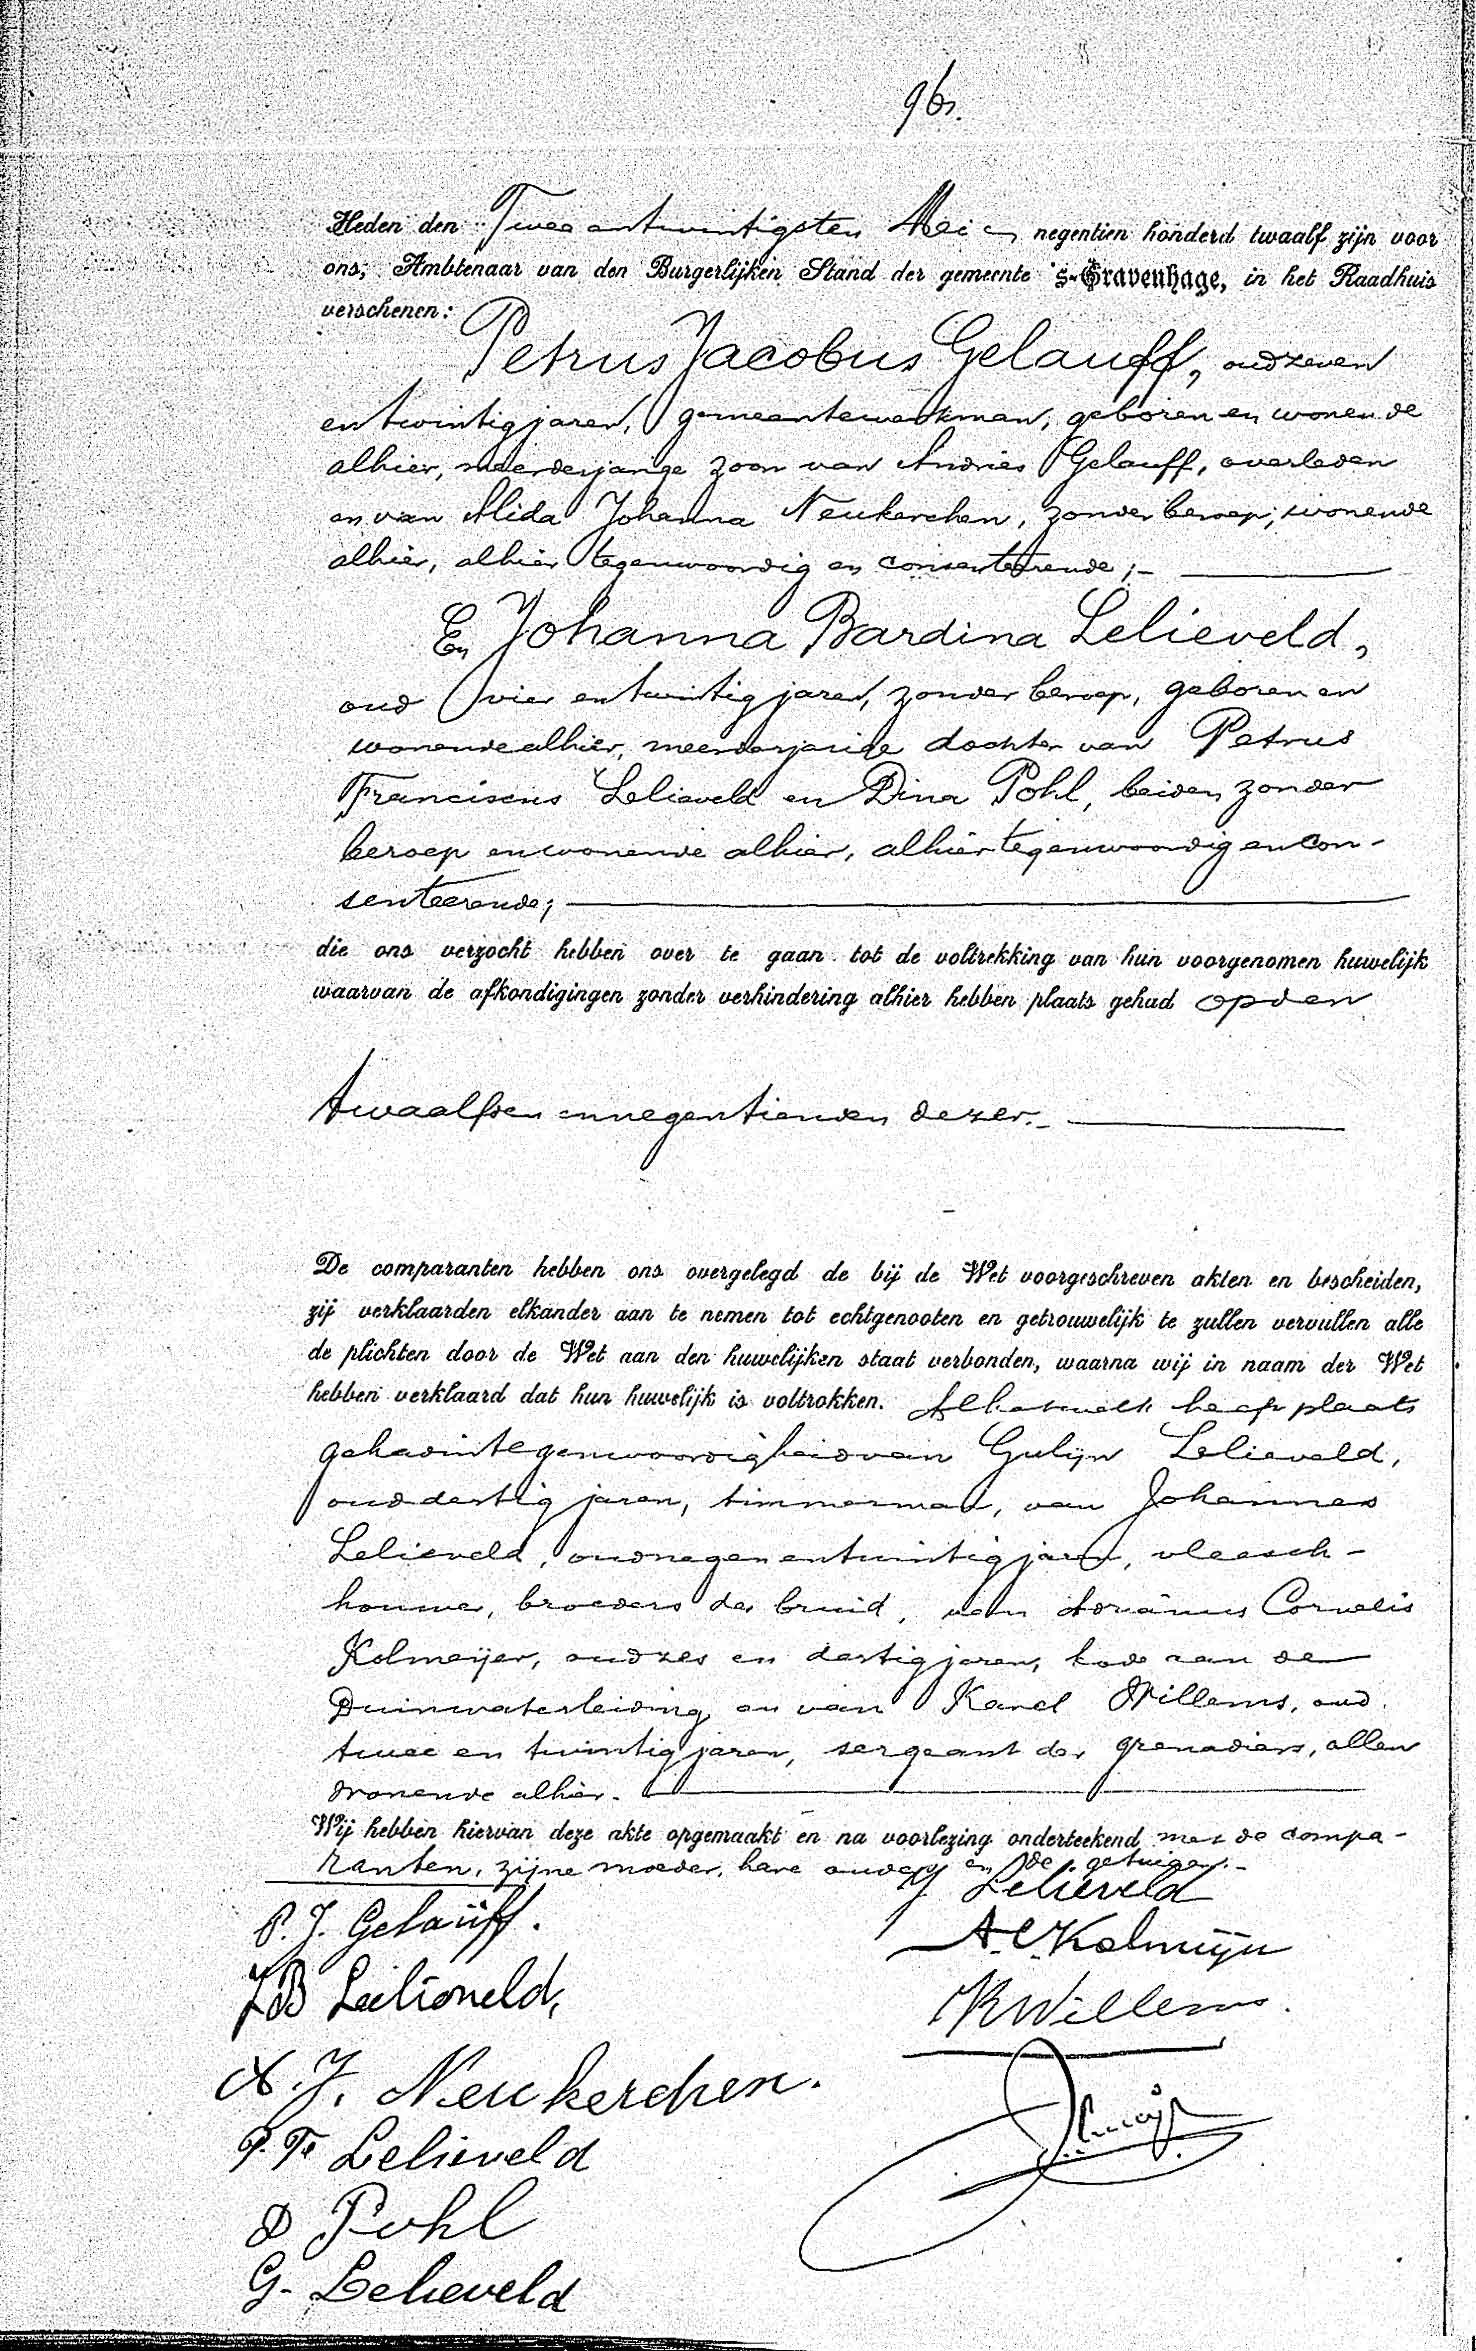 96.
Heden den Twee en twintigsten Mei negentien honderd twaalf zijn voor
ons, Ambtenaar van den Burgerlijken Stand der gemeente 's-Gravenhage, in het Raadhuis
verschenen:
Petrus Jacobus Gelauff, oud zeven
en twintig jaren, gemeentewerkman, geboren en wonende
alhier, meerderjarige zoon van Andries Gelauff, overleden
en van Alida Johanna Neukerchen, zonder beroep, wonende
alhier, alhier tegenwoordig en consenteerende;
En Johanna Bardina Lelieveld,
oud vier en twintig jaren, zonder beroep, geboren en
wonende alhier, meerderjarige dochter van Petrus
Franciscus Lelieveld en Dina Pohl, beiden zonder
beroep en wonende alhier, alhier tegenwoordig en con-
senteerende;
die ons verzocht hebben over te gaan tot de voltrekking van hun voorgenomen huwelijk
waarvan de afkondigingen zonder verhindering alhier hebben plaats gehad op den
twaalfden en negentienden dezer.
De comparanten hebben ons overgelegd de bij de Wet voorgeschreven akten en bescheiden,
zij verklaarden elkander aan te nemen tot echtgenooten en getrouwelijk te zullen vervullen alle
de plichten door de Wet aan den huwelijken staat verbonden, waarna wij in naam der Wet
hebben verklaard dat hun huwelijk is voltrokken. Al hetwelk heeft plaats
gehad in tegenwoordigheid van Gulijn Lelieveld,
oud dertig jaren, timmerman, van Johannes
Lelieveld, oud negen en twintig jaren, vleesch-
houwer, broeders der bruid, van Adrianus Cornelis
Kolmeijer, oud zes en dertig jaren, bode aan de
Duinwaterleiding en van Karel Willems, oud
twee en twintig jaren, sergeant der grenadiers, allen
wonende alhier.
Wij hebben hiervan deze akte opgemaakt en na voorlezing onderteekend met de compa-
ranten, zijne moeder, hare ouders en de getuigen.
P. J. Gelauff.
J Lelieveld
J B Lelieveld,
A. C. Kolmeijer
K Willems.
A. J. Neukerchen.
P. F. Lelieveld
D Pohl
G. Lelieveld